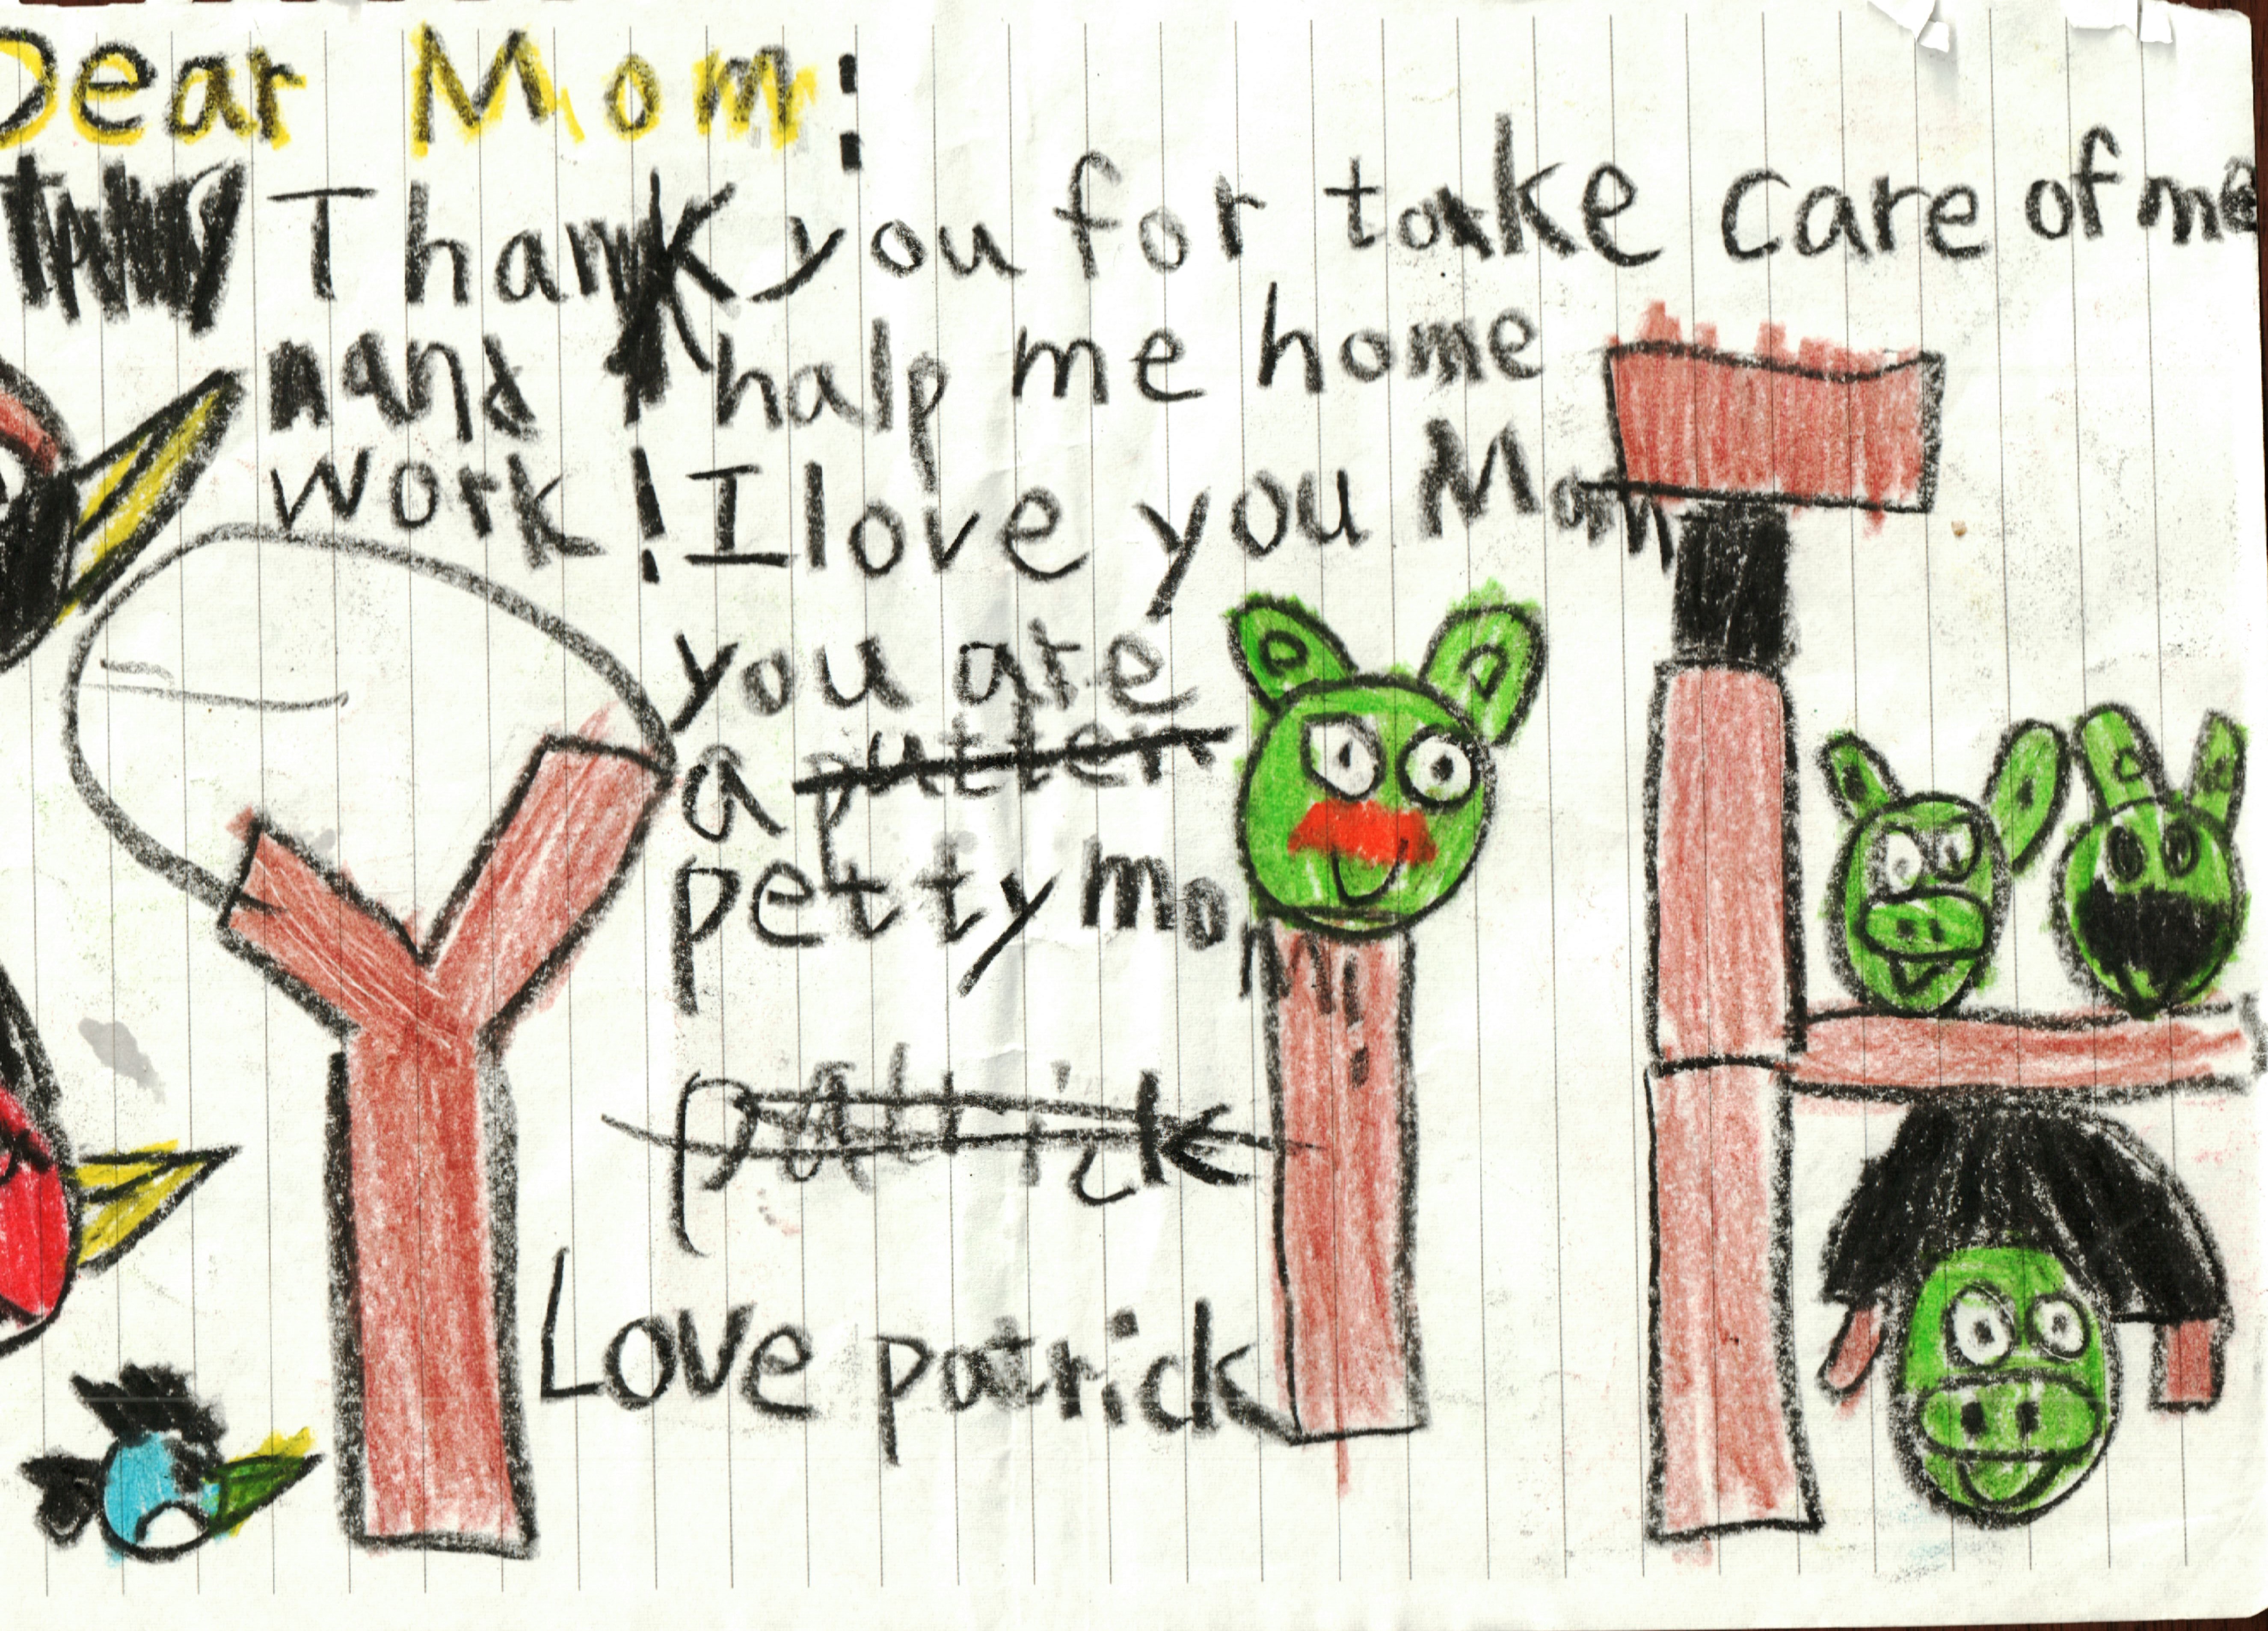 Dear Mom:
Thank you for take care of me
and halp me home
work! I love you Mom
you are
a putten
petty mom!!!
patrick
Love patrick